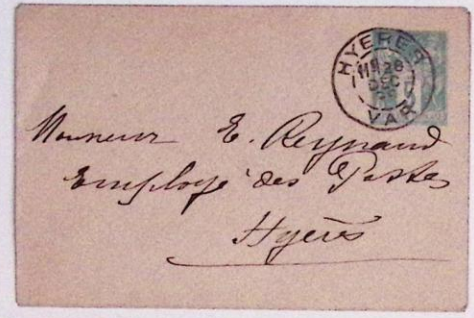 HYERES
11 28
DEC
VAR
Monsieur E. Reynaud
Employé des Postes
Hyères